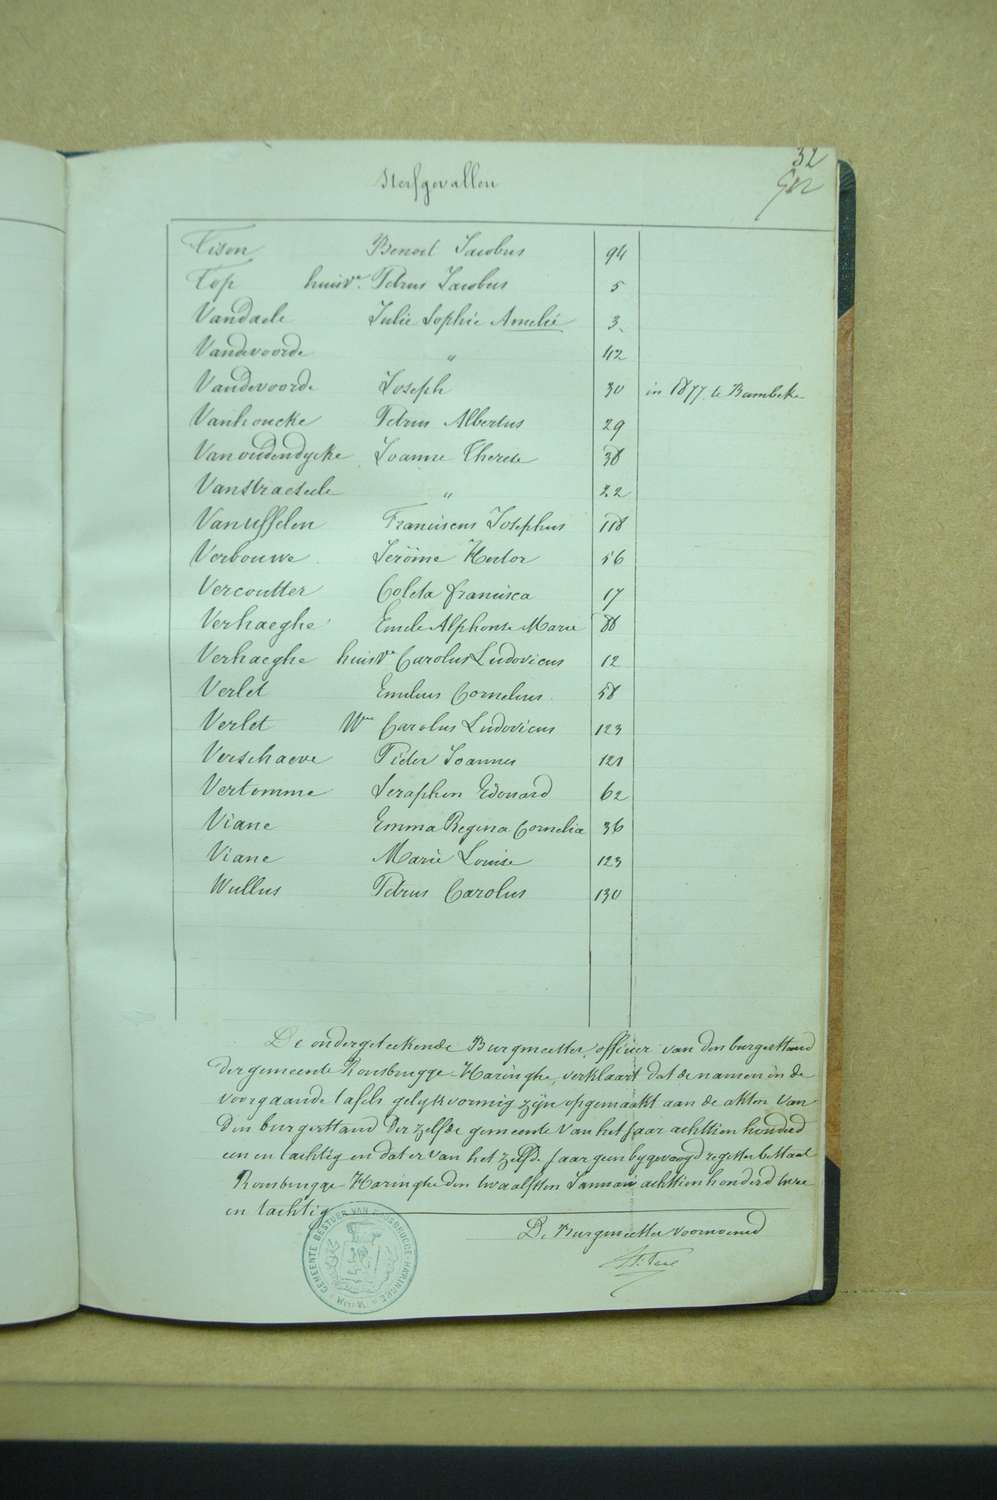 32
Sterfgevallen
Tison Benoit Jacobus 94
Top huisve. Petrus Jacobus 5
Vandaele Julie Sophie Amelie 3
Vandevoorde " 42
Vandevoorde Joseph 30 in 1877 te Bambeke
Vanhoucke Petrus Albertus 29
Vanoudendycke Joanne Therese 38
Vanstraeseele " 22
Vanusselen Franciscus Josephus 118
Verbouwe Jerôme Hector 56
Vercoutter Coleta Francisca 17
Verhaeghe Emile Alphonse Marie 88
Verhaeghe huisve Carolus Ludovicus 12
Verlet Emilius Cornelius 58
Verlet We Carolus Ludovicus 123
Verschaeve Pieter Joannes 121
Vertomme Seraphin Edouard 62
Viane Emma Regina Cornelia 36
Viane Marie Louise 123
Wullus Petrus Carolus 130
De ondergeteekende Burgmeester, officier van den burgerstand
der gemeente Rousbrugge-Haringhe, verklaart dat de namen in de
voorgaande tafels gelykvormig zijn opgemaakt aan de akten van
den burgerstand der zelfde gemeente van het jaar achttien honderd
een en tachtig en dat er van het zelfde jaar geen bygevoegd register bestaat
Rousbrugge-Haringhe den twaalfsten Januari achttien honderd twee
en tachtig
De Burgmeester voornoemd
GEMEENTE BESTUUR VAN ROUSBRUGGE-HARINGHE
West-Vl.